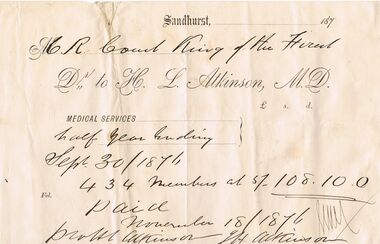 Sandhurst, 187
M R Court King of the Forest
Dr. to H. L. Atkinson, M.D.
£ s. d.
MEDICAL SERVICES
half year Ending
Sept 30/1876
434 members at 5/. 108.10.0
Fol.
Paid
November 18/1876
pro H L Atkinson Atkinson